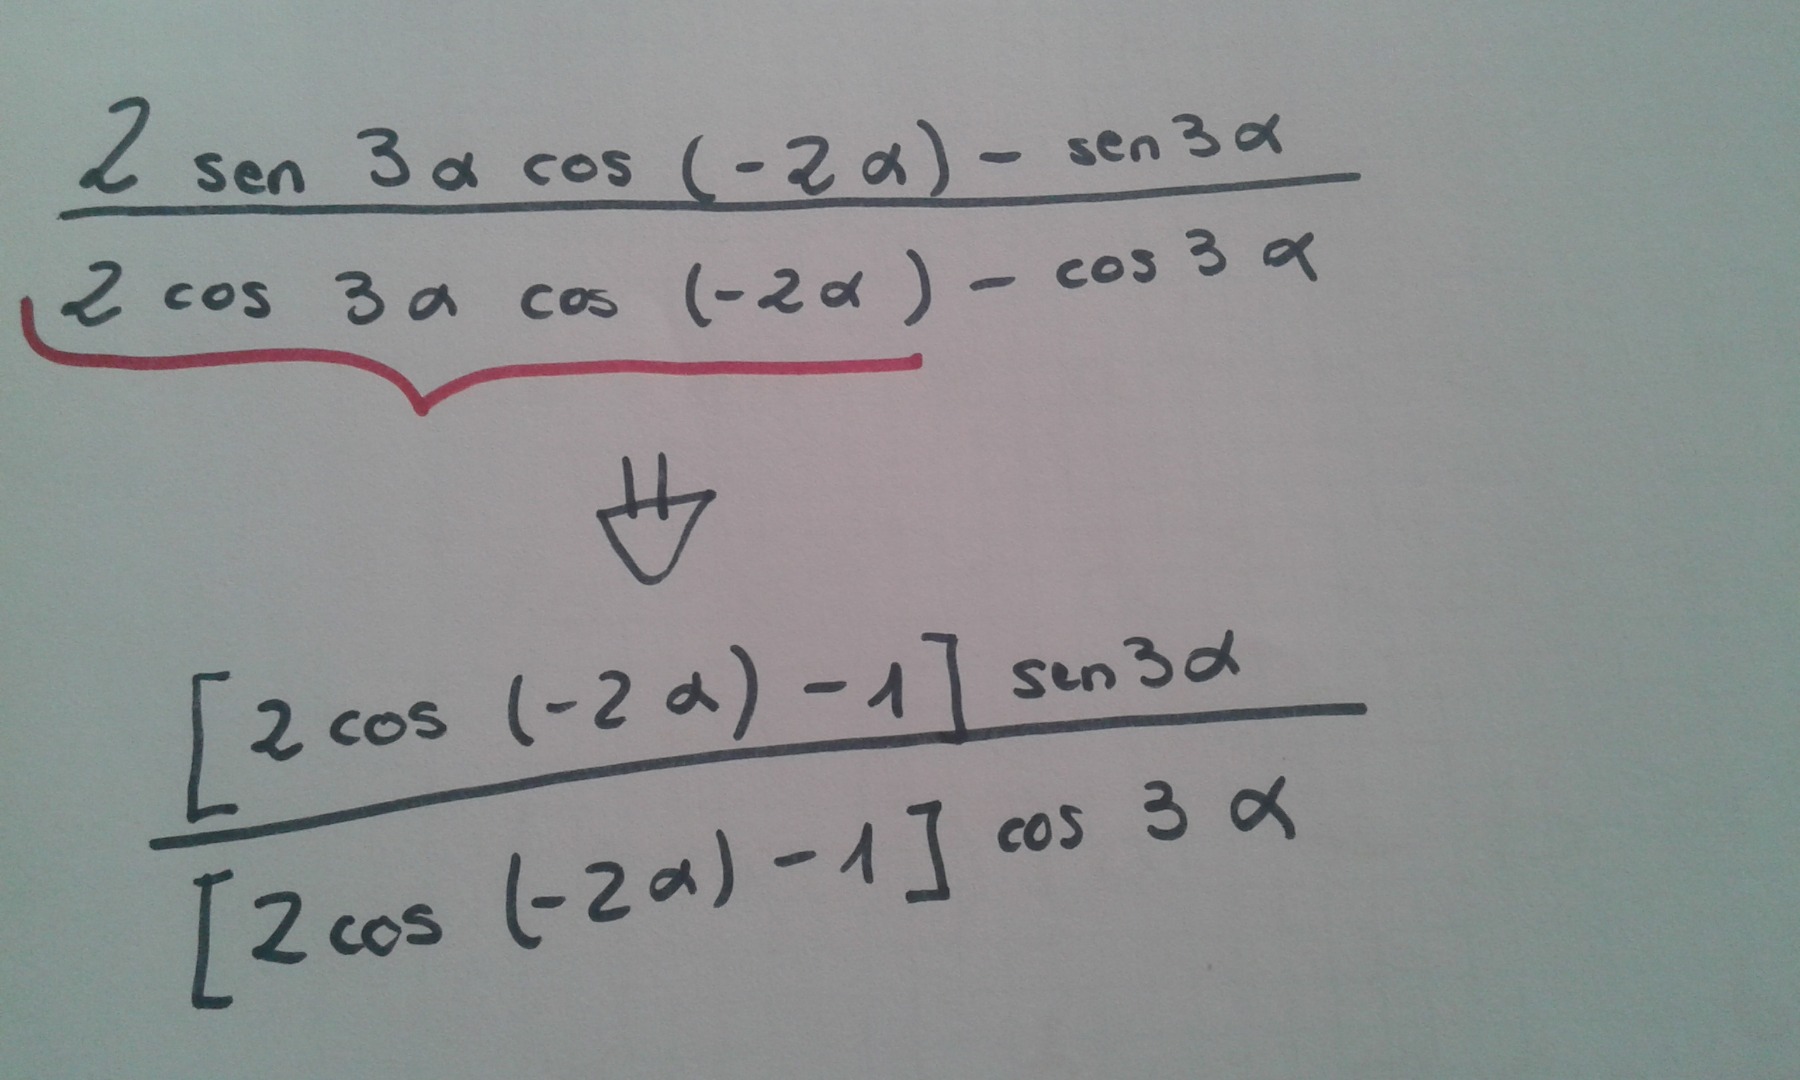 2 sen 3α cos (-2α) - sen 3α
2 cos 3α cos (-2α) - cos 3α
[2 cos (-2α) - 1] sen 3α
[2 cos (-2α) - 1] cos 3α